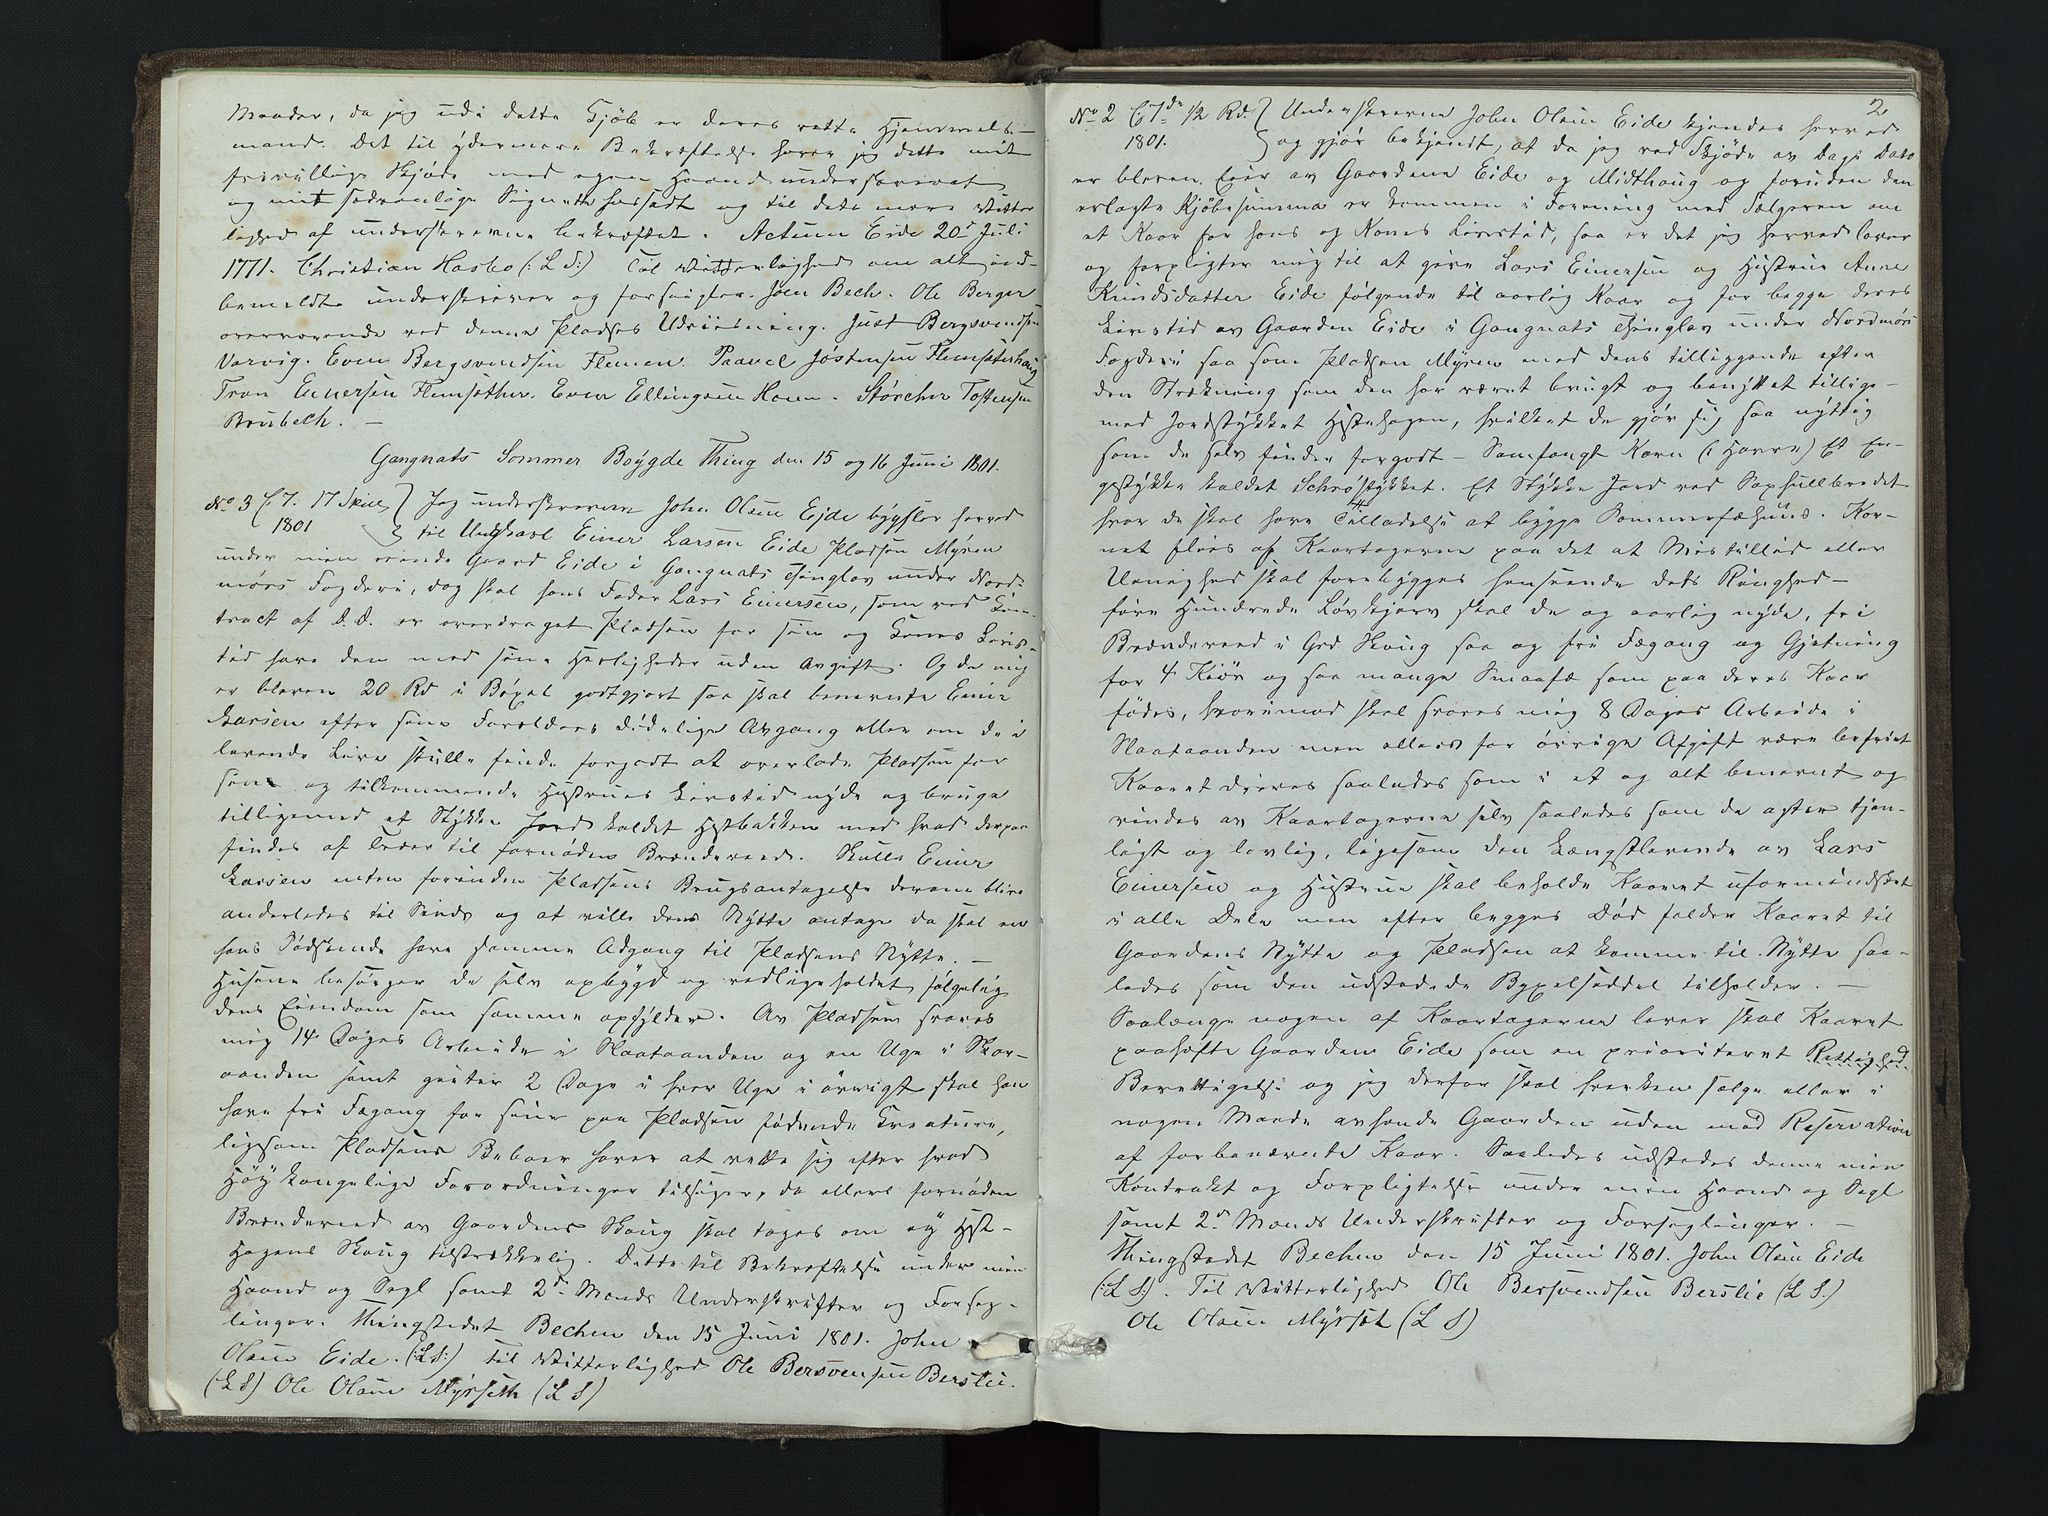 Maader, da jeg udi dette Kjøb er deres rette Hjemmels-
mand. Det til ydermere Bekræftelse haver jeg dette mit
frivillige Skjøde med egen Haand underskrevet
og mit sædvanlige Signete hossadt og til dets mere Vitter
lighed af underskrevne bekræftet. Actum Eide 20de Juli
1771. Christian Hasbo (: L S:) Til Vitterlighed om alt ind-
bemeldte underskriver og forseigler. Joen Bech. Ole Berger
overværende ved denne Pladses Udviisning. Just Bergsvendsen
Varvig. Even Bergsvendsen Flemen. Paavel Jøstensen Flemsæterhaug
Tron Einersen Flemsæther. Even Ellingsen Horn. Størcher Tostensen
Brubech. —
Gangnats Sommer Boÿgde Thing den 15 og 16 Juni 1801.
No 3 C 7. 17 Skill } Jeg underskrevne John Olsen Ejde bygsler herved
1801 til Ungkarl Einer Larsen Eide Pladsen Myren
under min eiende Gaard Eide i Gangnats Thinglav under Nord-
mørs Fogderi, dog skal hans Fader Lars Einersen, som ved Con-
tract af D. D. er overdraget Pladsen for sin og Kones Livs-
tid have den med sine Herligheder uden Avgift. Og da mig
er bleven 20 Rd i Bøxel godtgjort saa skal benævnte Einer
Larsen efter sine Forældres dødelige Avgang eller om de i
levende Live skulle finde forgodt at overlade Pladsen for
sin og tilkommende Hustrues Livstid nyde og bruge
tilligemed et Stykke Jord kaldet Hestbakken med hvad derpaa
findes af Træer til fornøden Brændeveed. Skulle Einer
Larsen inten forinden Pladsens Brugsantagelse derom blive
anderledes til Sinds og at ville dens Nytte antage da skal en
hans Sødskende have samme Adgang til Pladsens Nytte. —
Husene besørger de selv opbygd og vedligeholdet følgelig
dens Eiendom som samme opfylder. Av Pladsen svares
mig 14 Dages Arbeide i Slaataanden og en Uge i Skur-
aanden samt giæter 2 Dage i hver Uge i øvrigt skal han
have fri Fægang for sine paa Pladsen fødende Creature,
ligesom Pladsens Beboer haver at rette sig efter hvad
Høÿ kongelige Forordninger tilsiger, da ellers fornøden
Brændeveed av Gaardens Skoug skal tages om eÿ Hest-
Hagens Skoug tilstrækkelig. Dette til Bekræftelse under min
Haand og Segl samt 2de Mænds Underskrifter og Forseg-
linger. Thingstedet Bechen den 15 Juni 1801. John
Olsen Eide. (:LS:) til Vitterlighed Ole Bersvensen Berslie.
(LS) Ole Olsen Myrseth (L S)
2
No 2 C 7de ½ Rd. } Underskrevne John Olsen Eide kjendes herved
1801. og gjør bekjendt, at da jeg ved Skjøde av Dags Dato
er bleven Eier av Gaardene Eide og Midthaug og foruden den
erlagte Kjøbesumma er kommen i Forening med Sælgeren om
et Kaar for hans og Kones Livstid, saa er det jeg herved lover
og forpligter mig til at give Lars Einersen og Hustrue Anne
Knudsdatter Eide følgende til aarlig Kaar og for begge deres
Livstid av Gaarden Eide i Gangnats Thinglav under Nordmørs
Fogderi saa som Pladsen Myren med dens tilliggende efter
den Strækning som den har været brugt og benyttet tillige-
med Jordstykket Hestehagen, hvilket de gjør sig saa nyttig
som de selv finder forgodt — Samfængt Korn (i Havre) Et En-
gestykke kaldet Schrøstykket. Et Stykke Jord ved Saxhullbredet
hvor de skal have Tilladelse at bygge Sommerfæhuus. Kor-
net flöes af Kaartagerne paa det at Mistillid eller
Uenighed skal forebygges henseende dets Ringhed —
føre Hundrede Løvkjerv skal de og aarlig nyde, fri
Brændeveed i Grd Skoug saa og fri Fægang og Gjætning
for 4 Kiør og saa mange Smaafæ som paa deres Kaar
fødes, hvorimod skal svares mig 8 Dages Arbeide i
Slaataanden men ellers for øvrige Afgift være befriet
Kaaret drives saaledes som i et og alt benevnt og
vindes av Kaartagerne selv saaledes som de agter tjen-
ligt og lovlig, ligesom den Længstlevende av Lars
Einersen og Hustrue skal beholde Kaaret uformindsket
i alle Dele men efter begges Død falder Kaaret til
Gaardens Nytte og Pladsen at komme til Nytte saa-
ledes som den udstedede Byxelseddel tilholder. —
Saalænge nogen af Kaartagerne lever skal Kaaret
paahefte Gaarden Eide som en prioriteret Rettighed
Berettigelse og jeg derfor skal hverken sælge eller i
nogen Maade avhende Gaarden uden med Reservation
af forbenævnte Kaar. Saaledes udstedes denne min
Kontrakt og Forpligtelse under min Haand og Segl
samt 2de Mænds Underskrifter og Forseglinger. —
Thingstedet Bechen den 15 Juni 1801. John Olsen Eide
(:L S:). Til Vitterlighed Ole Bersvendsen Berslie (L S.)
Ole Olsen Myrset (L S)